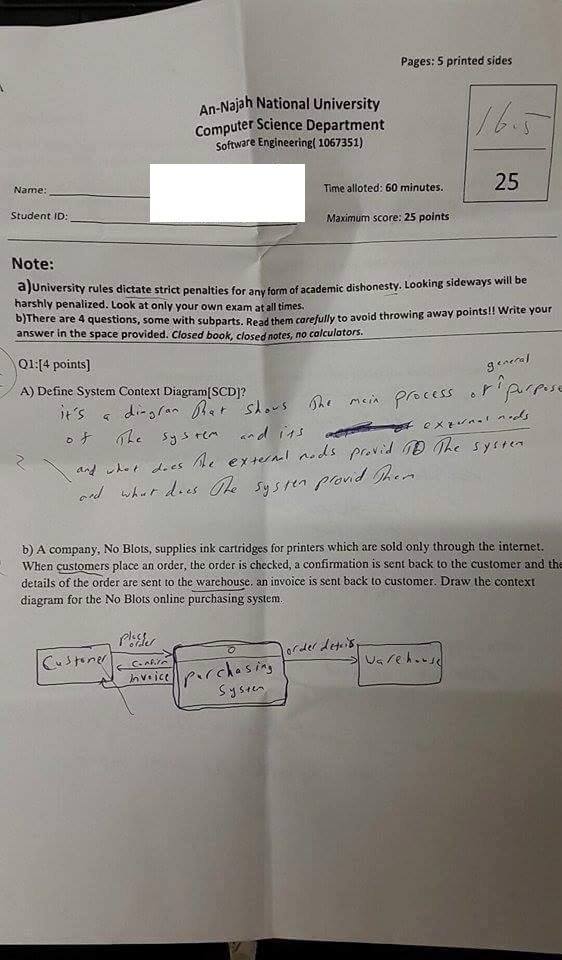 Pages: 5 printed sides
An-Najah National University
Computer Science Department
Software Engineering( 1067351)
16.5
25
Name:
Time alloted: 60 minutes.
Student ID:
Maximum score: 25 points
Note:
a)University rules dictate strict penalties for any form of academic dishonesty. Looking sideways will be
harshly penalized. Look at only your own exam at all times.
b)There are 4 questions, some with subparts. Read them carefully to avoid throwing away points!! Write your
answer in the space provided. Closed book, closed notes, no calculators.
Q1:[4 points]
A) Define System Context Diagram[SCD]?
general
it's a diagram that shows the main process or purpose
of the system and its external nods
and what does the external nods provid to the system
and what does the system provid them
b) A company, No Blots, supplies ink cartridges for printers which are sold only through the internet.
When customers place an order, the order is checked, a confirmation is sent back to the customer and the
details of the order are sent to the warehouse. an invoice is sent back to customer. Draw the context
diagram for the No Blots online purchasing system.
place
order
Customer
Confirm
invoice
0
purchasing
System
order details
warehouse